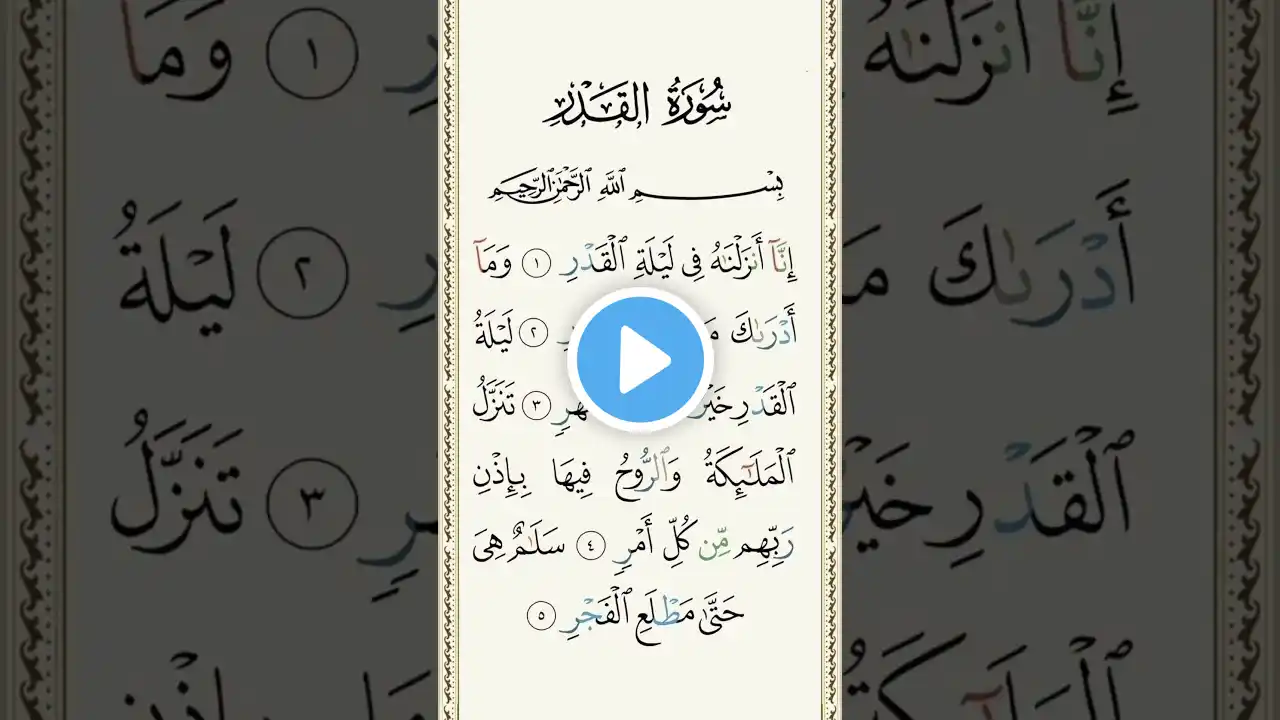 سُورَةُ القَدْرِ
بِسْمِ ٱللَّهِ ٱلرَّحْمَٰنِ ٱلرَّحِيمِ
إِنَّآ أَنزَلْنَٰهُ فِى لَيْلَةِ ٱلْقَدْرِ ١ وَمَآ
أَدْرَىٰكَ ٢ لَيْلَةُ
ٱلْقَدْرِ خَيْرٌ ٣ تَنَزَّلُ
ٱلْمَلَٰٓئِكَةُ وَٱلرُّوحُ فِيهَا بِإِذْنِ
رَبِّهِم مِّن كُلِّ أَمْرٍ ٤ سَلَٰمٌ هِىَ
حَتَّىٰ مَطْلَعِ ٱلْفَجْرِ ٥